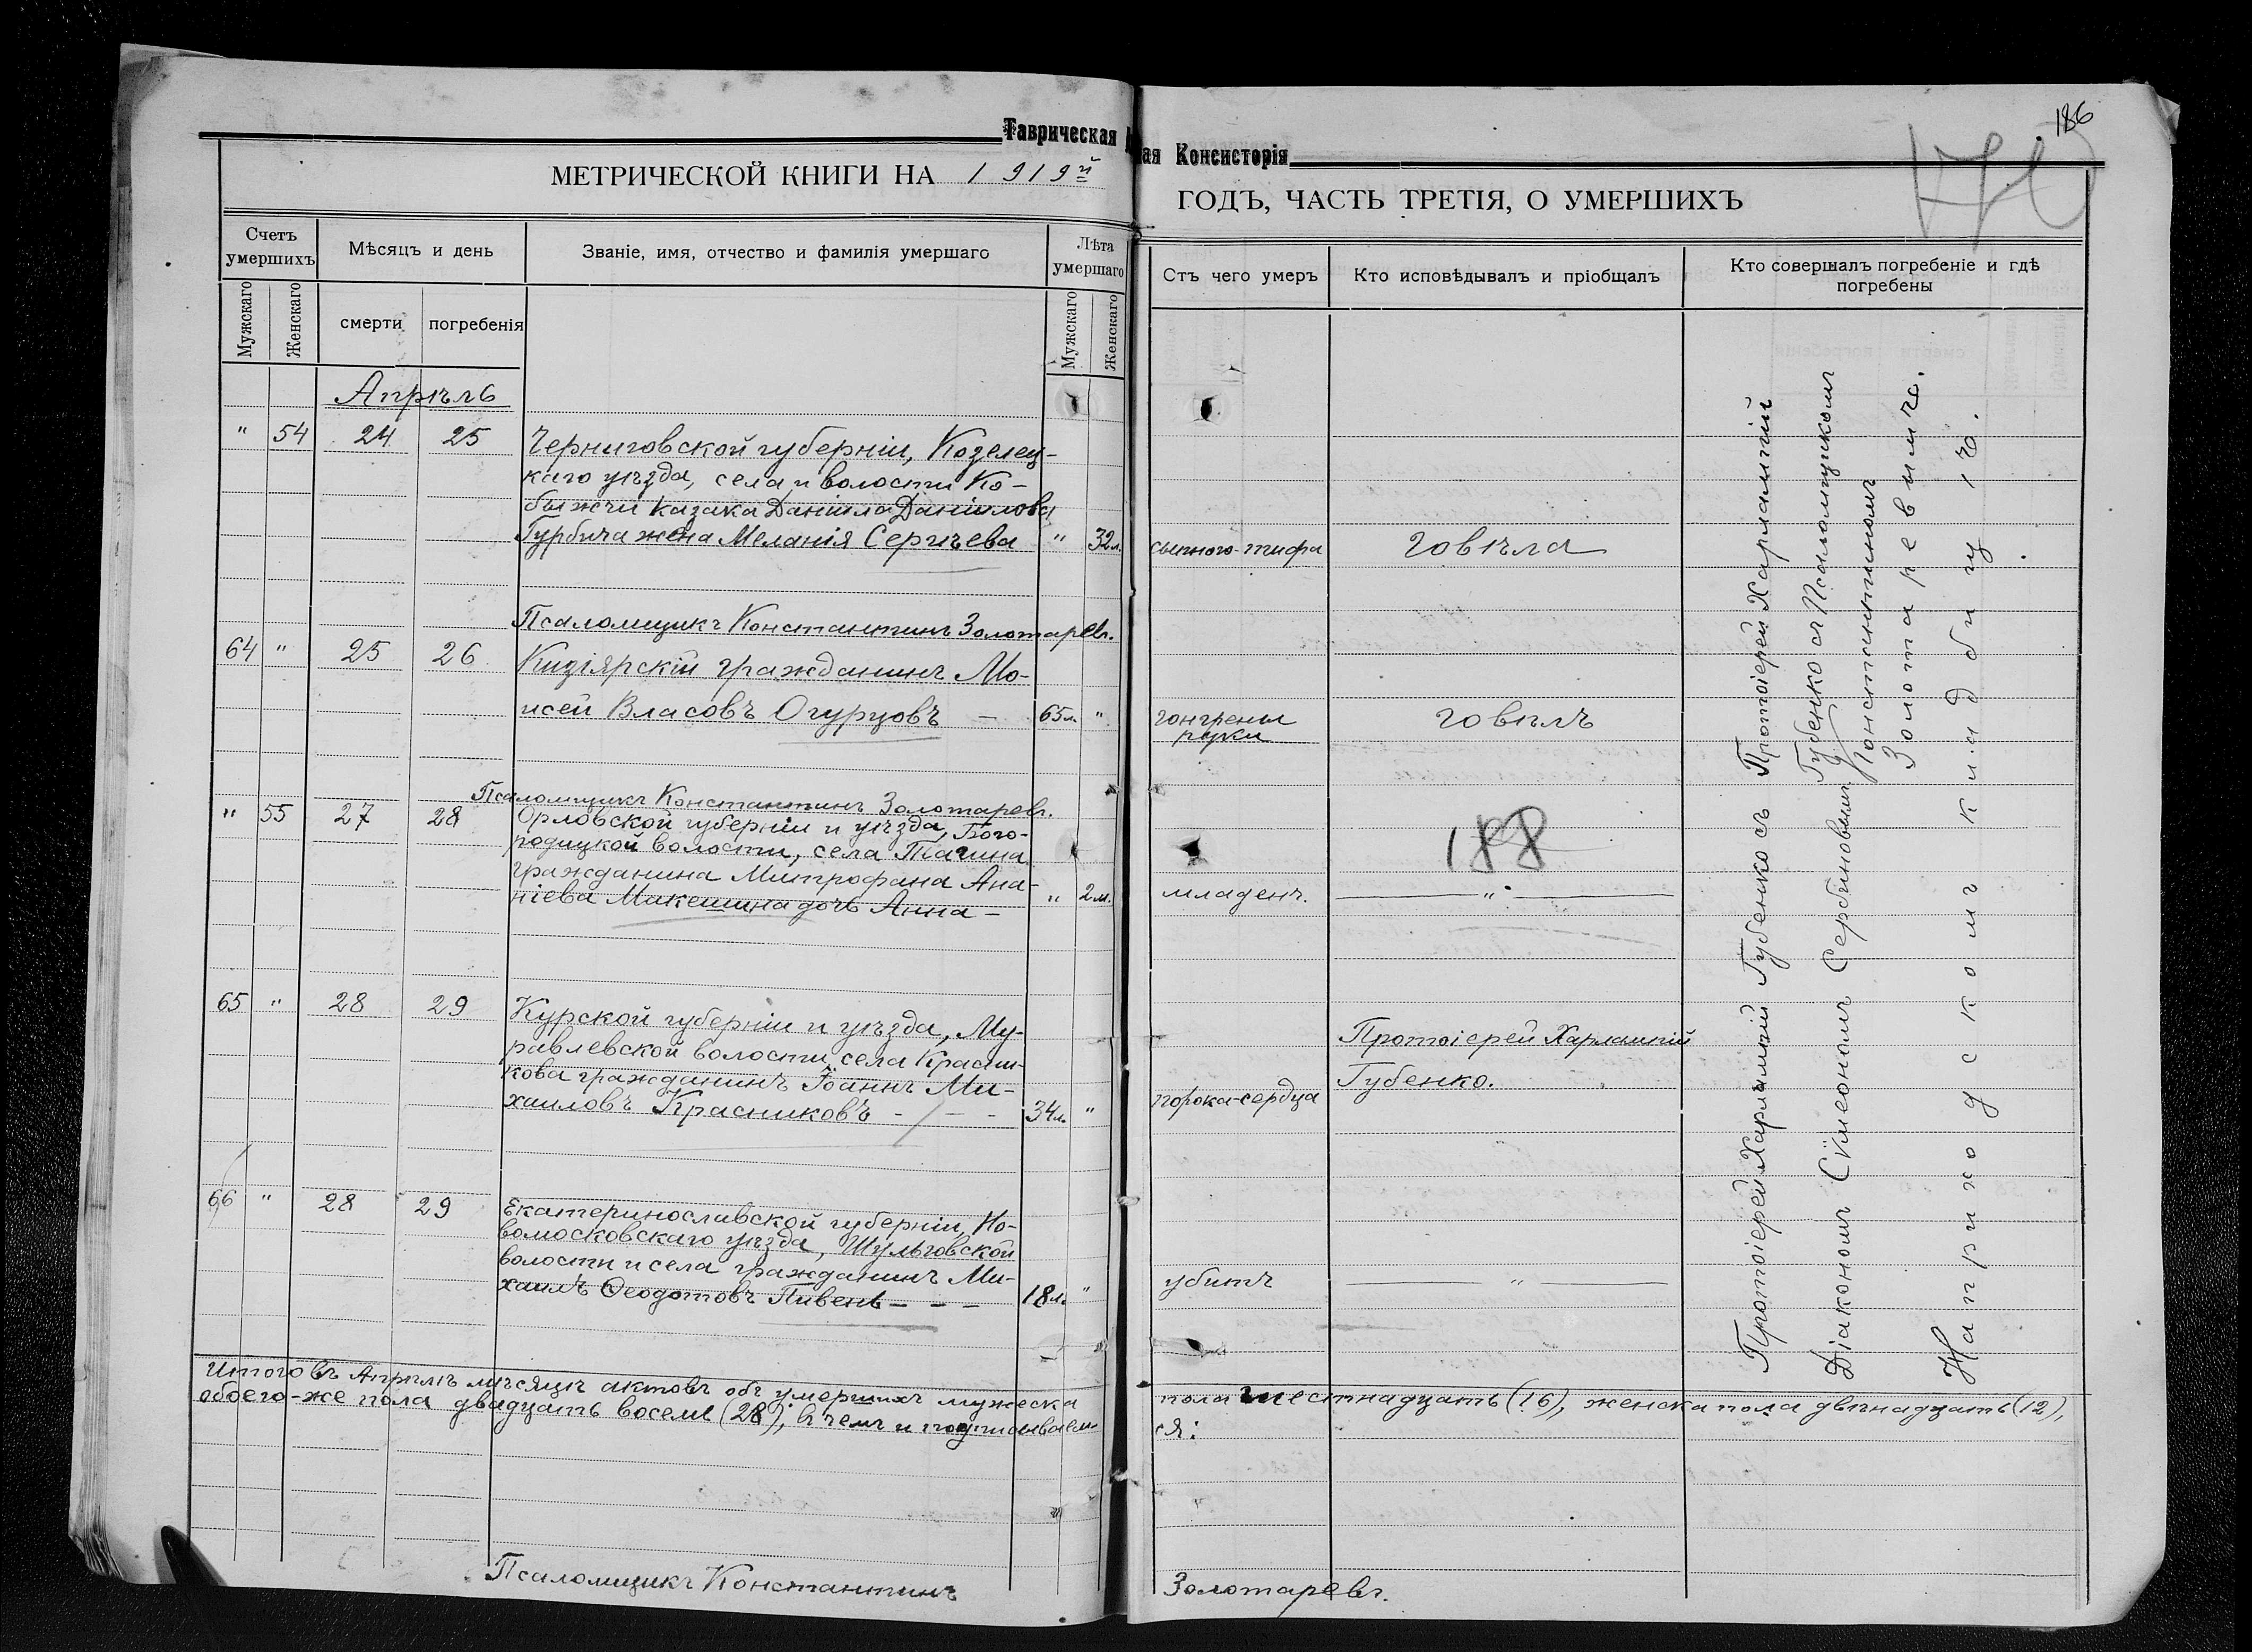 Таврическая
МЕТРИЧЕСКОЙ КНИГИ НА 1919й
Счетъ умершихъ
Мѣсяцъ и день
Званіе, имя, отчество и фамилія умершаго
Лѣта умершаго
Мужскаго
Женскаго
смерти
погребенія
Мужскаго
Женскаго
Апрѣль
" 54 24 25 Черниговской губерніи, Козелец-
каго уѣзда, села и волости Ко-
быжчи казака Даніила Даніилова
Гурбича жена Меланія Сергѣева " 32 л.
Псаломщикъ Константинъ Золотаревъ.
64 " 25 26 Кизіярскій гражданинъ Мо-
исей Власовъ Огурцовъ — 65 л. "
Псаломщикъ Константинъ Золотаревъ.
" 55 27 28 Орловской губерніи и уѣзда, Бого-
родицкой волости, села Тагина
гражданина Митрофана Ана-
ніева Микешина дочь Анна — " 2 м.
65 " 28 29 Курской губерніи и уѣзда, Му-
равлевской волости, села Красни-
кова гражданинъ Іоаннъ Ми-
хаиловъ Красниковъ - — - 34 л. "
66 " 28 29 Екатеринославской губерніи, Но-
вомосковскаго уѣзда, Шульговской
волости и села гражданинъ Ми-
хаилъ Ѳеодотовъ Пивень — — — 18 л. "
Итого въ Апрѣлѣ мѣсяцѣ актовъ объ умершихъ мужеска
обоего-же пола двадцать восемь (28), въ чемъ и подписываем
Псаломщикъ Константинъ
186
ая Консисторія
ГОДЪ, ЧАСТЬ ТРЕТІЯ, О УМЕРШИХЪ
Стъ чего умеръ
Кто исповѣдывалъ и пріобщалъ
Кто совершалъ погребеніе и гдѣ погребены
сыпного-тифа говѣла
гонгрены
руки говѣлъ
188
младенч. — " —
Протоіерей Харлампій
Губенко.
порока-сердца
убитъ — " —
Протоіерей Харлампій Губенко съ Протоіерей Харлампій
Діакономъ Сѵмеономъ Сербиновымъ. Губенко съ Псаломщикомъ
Константиномъ
Золотаревымъ.
На приходскомъ кладбищѣ.
пола шестнадцать (16), женска пола двѣнадцать (12),
ся:
Золотаревъ.